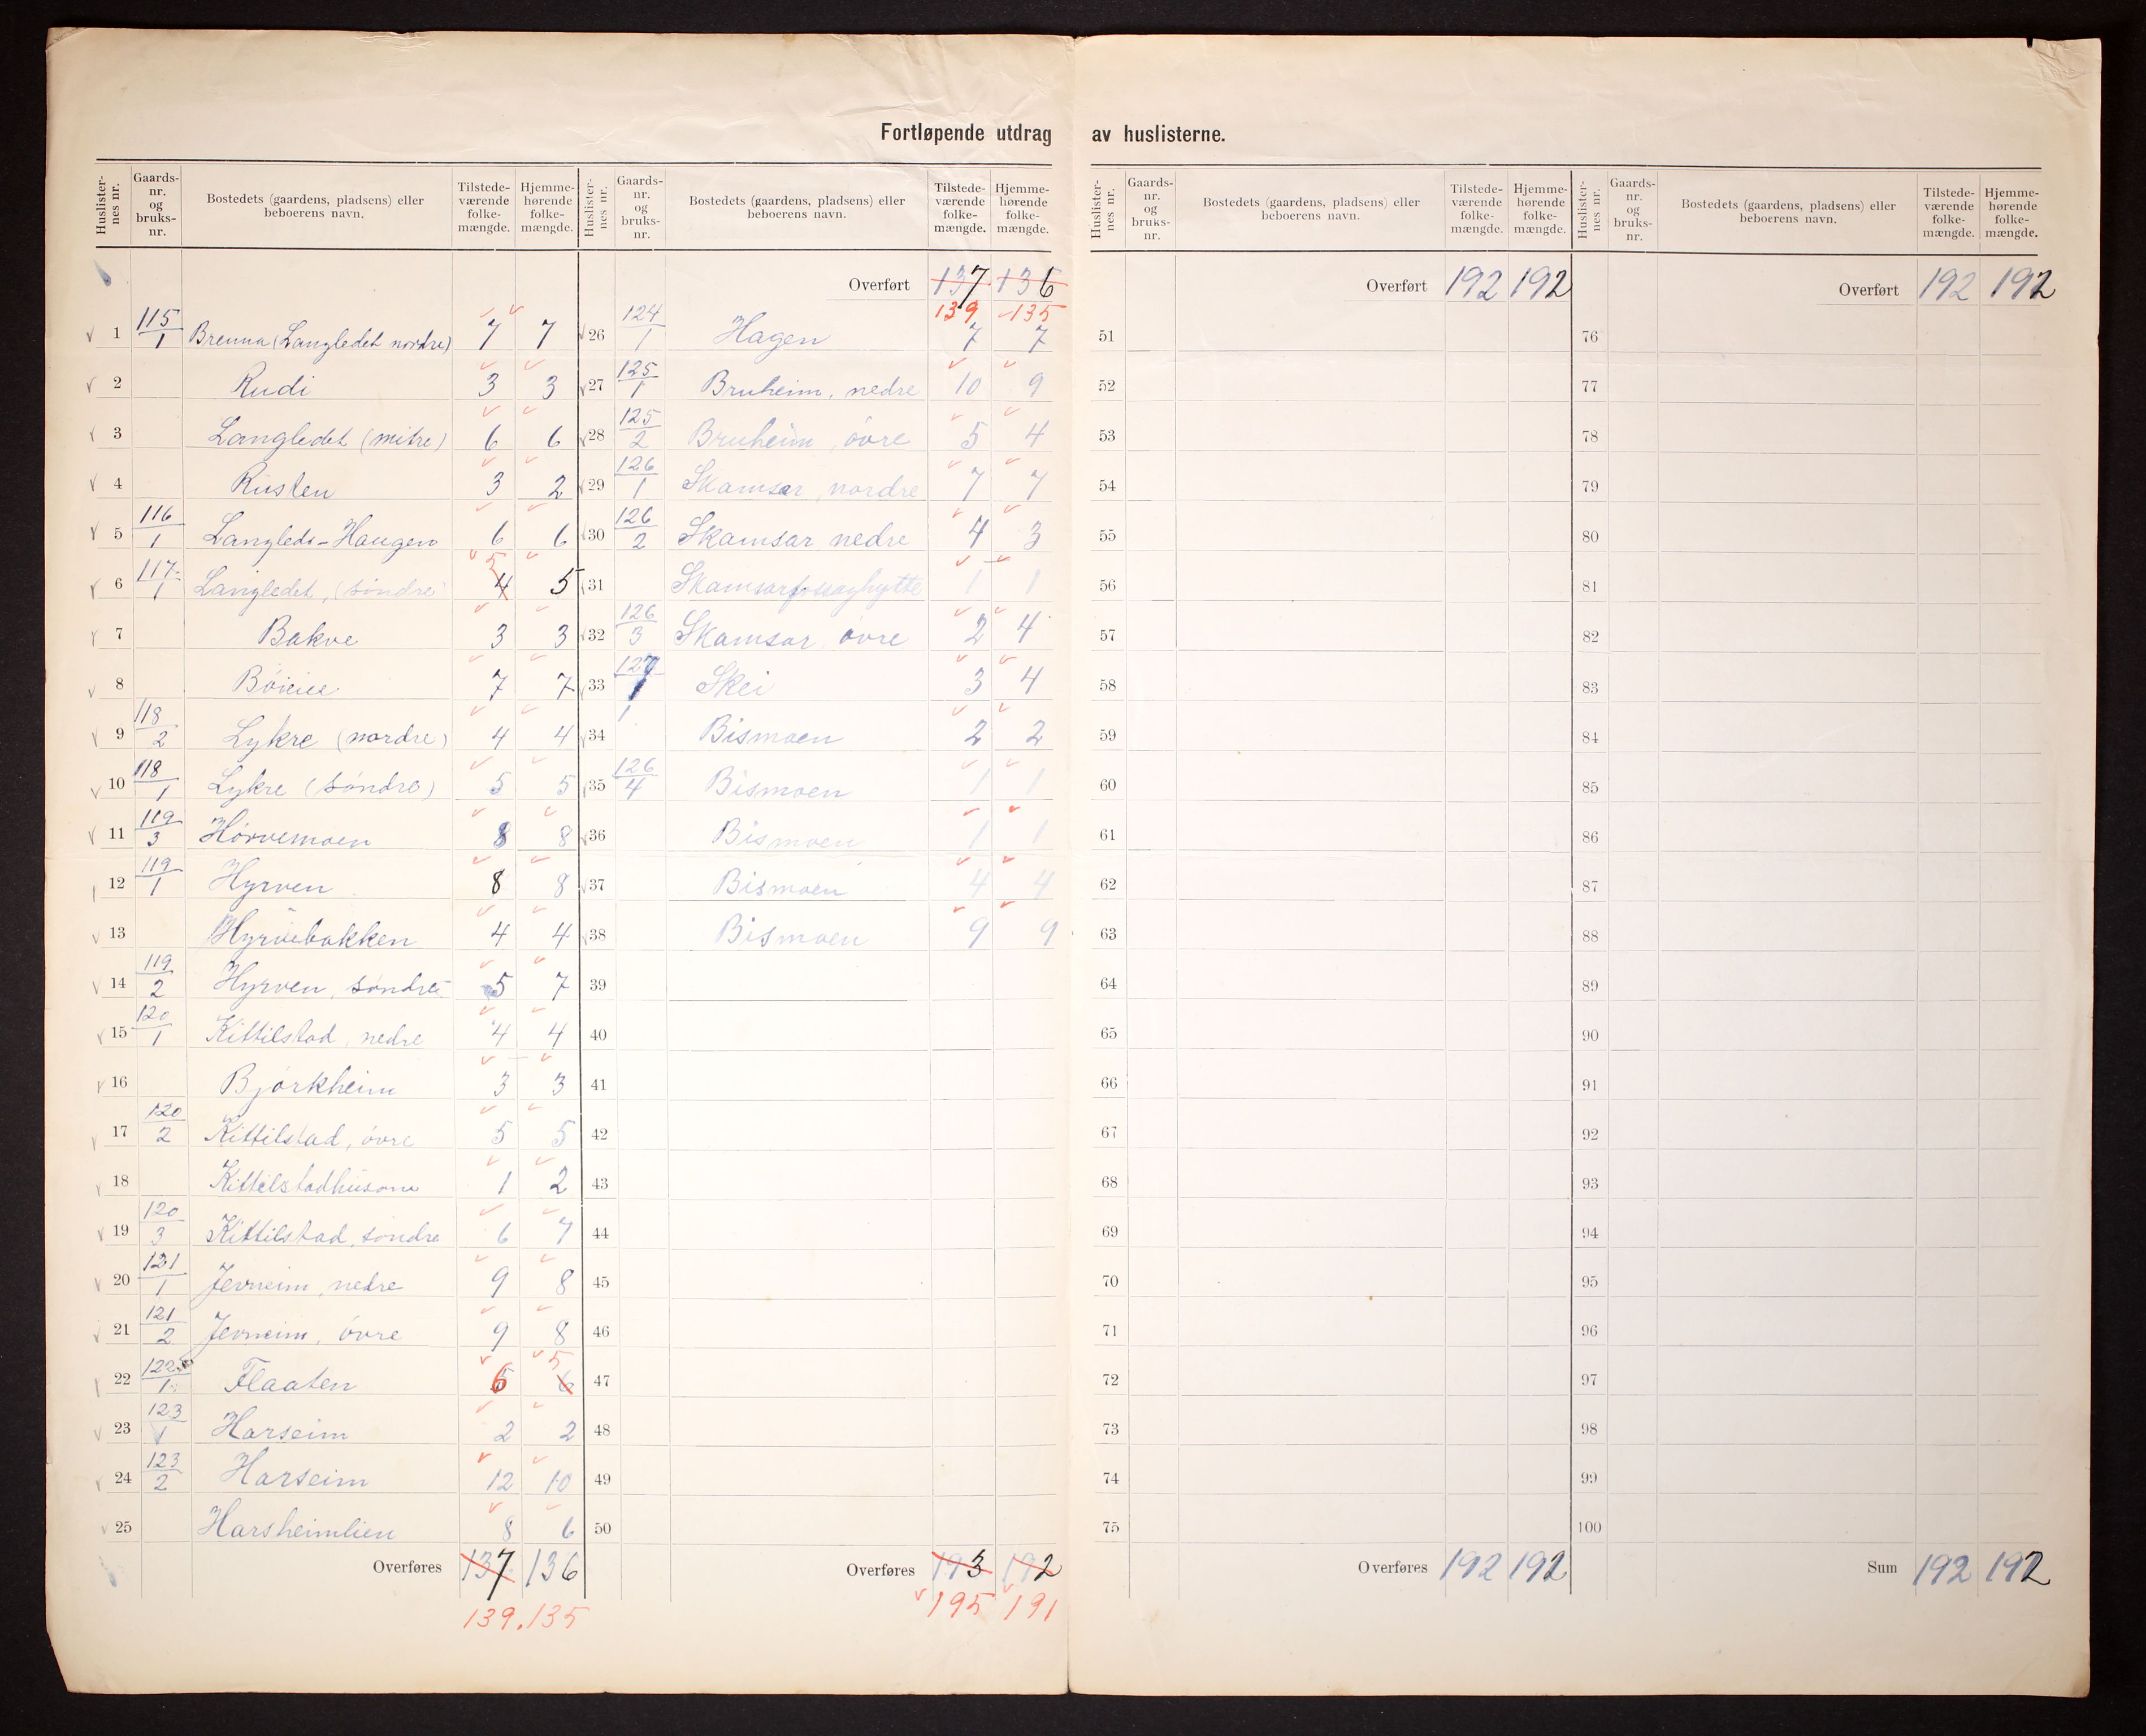 Fortløpende utdrag av huslisterne.
Huslisternes nr. Gaards-nr. og bruks-nr. Bostedets (gaardens, pladsens) eller beboerens navn. Tilstedeværende folkemængde. Hjemmehørende folkemængde.
1 115/1 Brenna (Langledet nordre) 7 7
2 Rudi 3 3
3 Langledet (mitre) 6 6
4 Rusten 3 2
5 116/1 Langleds-Haugen 6 6
6 117/1 Langledet, (søndre) 4 5 5
7 Bakve 3 3
8 7 7
9 118/2 Lykre (nordre) 4 4
10 118/1 Lykre (søndre) 5 5
11 119/3 Hørvemoen 8 8
12 119/1 Hyrven 8 8
13 Hyrvebakken 4 4
14 119/2 Hyrven, søndre 5 7
15 120/1 Kittilstad, nedre 4 4
16 Bjørkheim 3 3
17 120/2 Kittilstad, øvre 5 5
18 Kittilstadhusom 1 2
19 120/3 Kittilstad, søndre 6 7
20 121/1 Jevneim, nedre 9 8
21 121/2 Jevneim, øvre 9 8
22 122/1 Flaaten 6 6 5
23 123/1 Harseim 2 2
24 123/2 Harseim 12 10
25 Harsheimlien 8 6
Overføres 137 136
139. 135
Huslisternes nr. Gaards-nr. og bruks-nr. Bostedets (gaardens, pladsens) eller beboerens navn. Tilstedeværende folkemængde. Hjemmehørende folkemængde.
Overført 137 136
139 135
26 124/1 Hagen 7 7
27 125/1 Bruheim, nedre 10 9
28 125/2 Bruheim, øvre 5 4
29 126/1 Skamsar, nordre 7 7
30 126/2 Skamsar nedre 4 3
31 1 1
32 126/3 Skamsar øvre 2 4
33 127/1 Skei 3 4
34 Bismoen 2 2
35 126/4 Bismoen 1 1
36 Bismoen 1 1
37 Bismoen 4 4
38 Bismoen 9 9
39
40
41
42
43
44
45
46
47
48
49
50
Overføres 193 192
195 191
Huslisternes nr. Gaards-nr. og bruks-nr. Bostedets (gaardens, pladsens) eller beboerens navn. Tilstedeværende folkemængde. Hjemmehørende folkemængde.
Overført 192 192
51
52
53
54
55
56
57
58
59
60
61
62
63
64
65
66
67
68
69
70
71
72
73
74
75
Overføres 192 192
Huslisternes nr. Gaards-nr. og bruks-nr. Bostedets (gaardens, pladsens) eller beboerens navn. Tilstedeværende folkemængde. Hjemmehørende folkemængde.
Overført 192 192
76
77
78
79
80
81
82
83
84
85
86
87
88
89
90
91
92
93
94
95
96
97
98
99
100
Sum 192 192